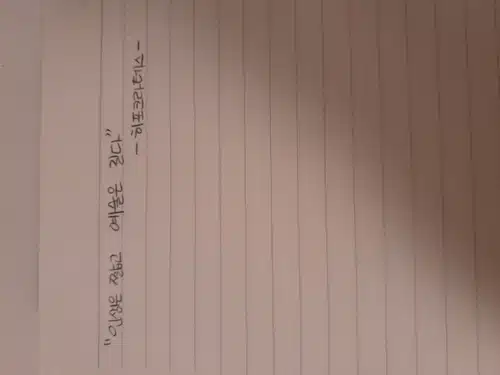 "인생은 짧고 예술은 길다"
- 히포크라테스 -